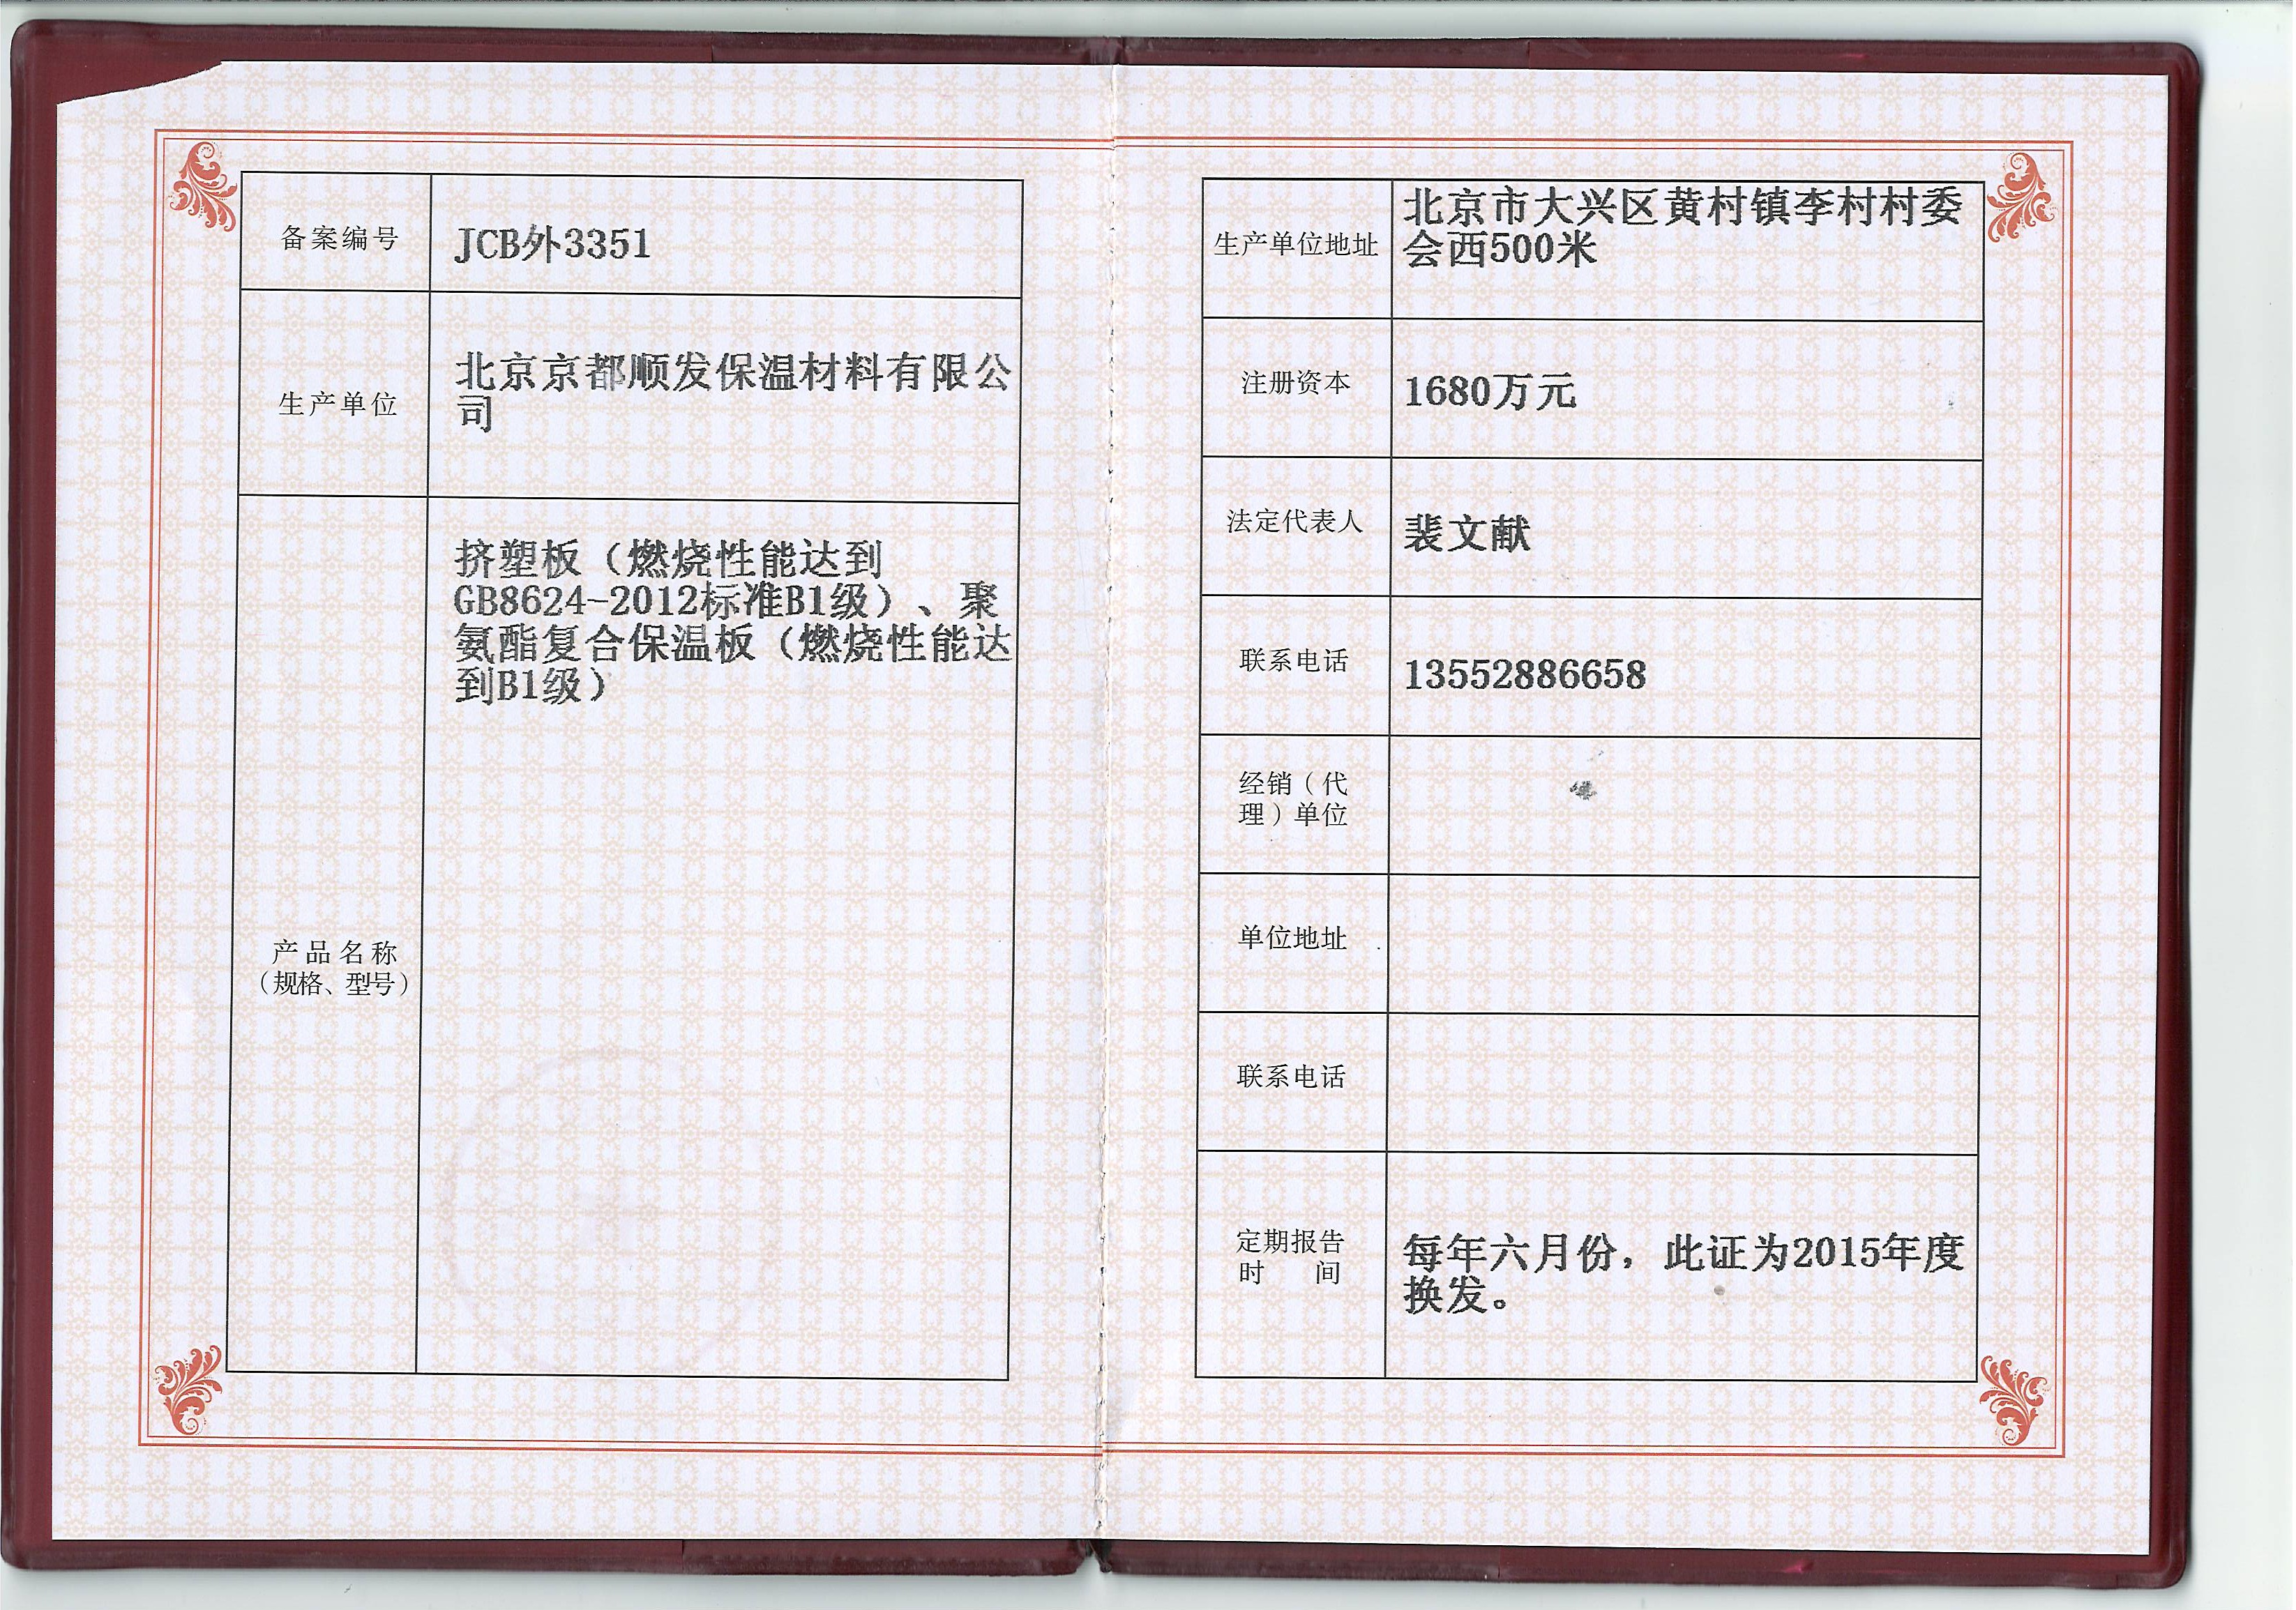 备案编号
JCB外3351
生产单位
北京京都顺发保温材料有限公
司
产品名称
（规格、型号）
挤塑板（燃烧性能达到
GB8624-2012标准B1级）、聚
氨酯复合保温板（燃烧性能达
到B1级）
生产单位地址
北京市大兴区黄村镇李村村委
会西500米
注册资本
1680万元
法定代表人
裴文献
联系电话
13552886658
经销（代
理）单位
单位地址
联系电话
定期报告
时 间
每年六月份，此证为2015年度
换发。